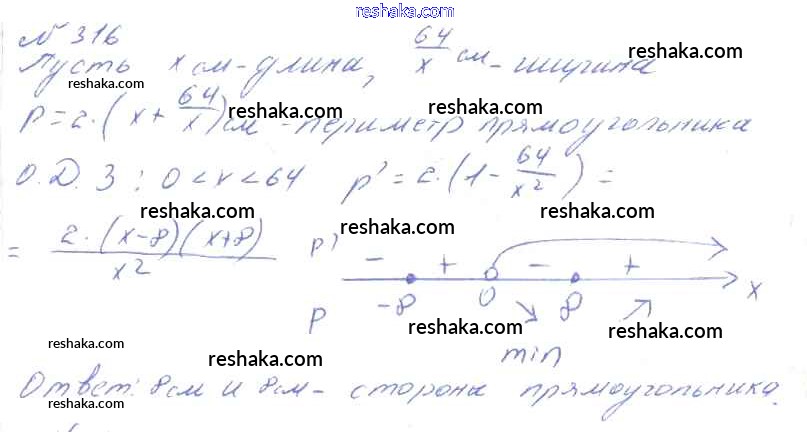 reshaka.com
№ 316
Пусть x см - длина, 64/x см - ширина
reshaka.com
reshaka.com
P = 2·(x + 64/x) см - периметр прямоугольника
reshaka.com
reshaka.com
О.Д.З: 0<x<64 P' = 2·(1 - 64/x²) =
reshaka.com
reshaka.com
= 2·(x-8)(x+8)/x²
P' - + - +
-8 0 8 x
P ↘ ↗
reshaka.com
reshaka.com
min
reshaka.com
reshaka.com
Ответ: 8см и 8см - стороны прямоугольника.
reshaka.com
reshaka.com
reshaka.com